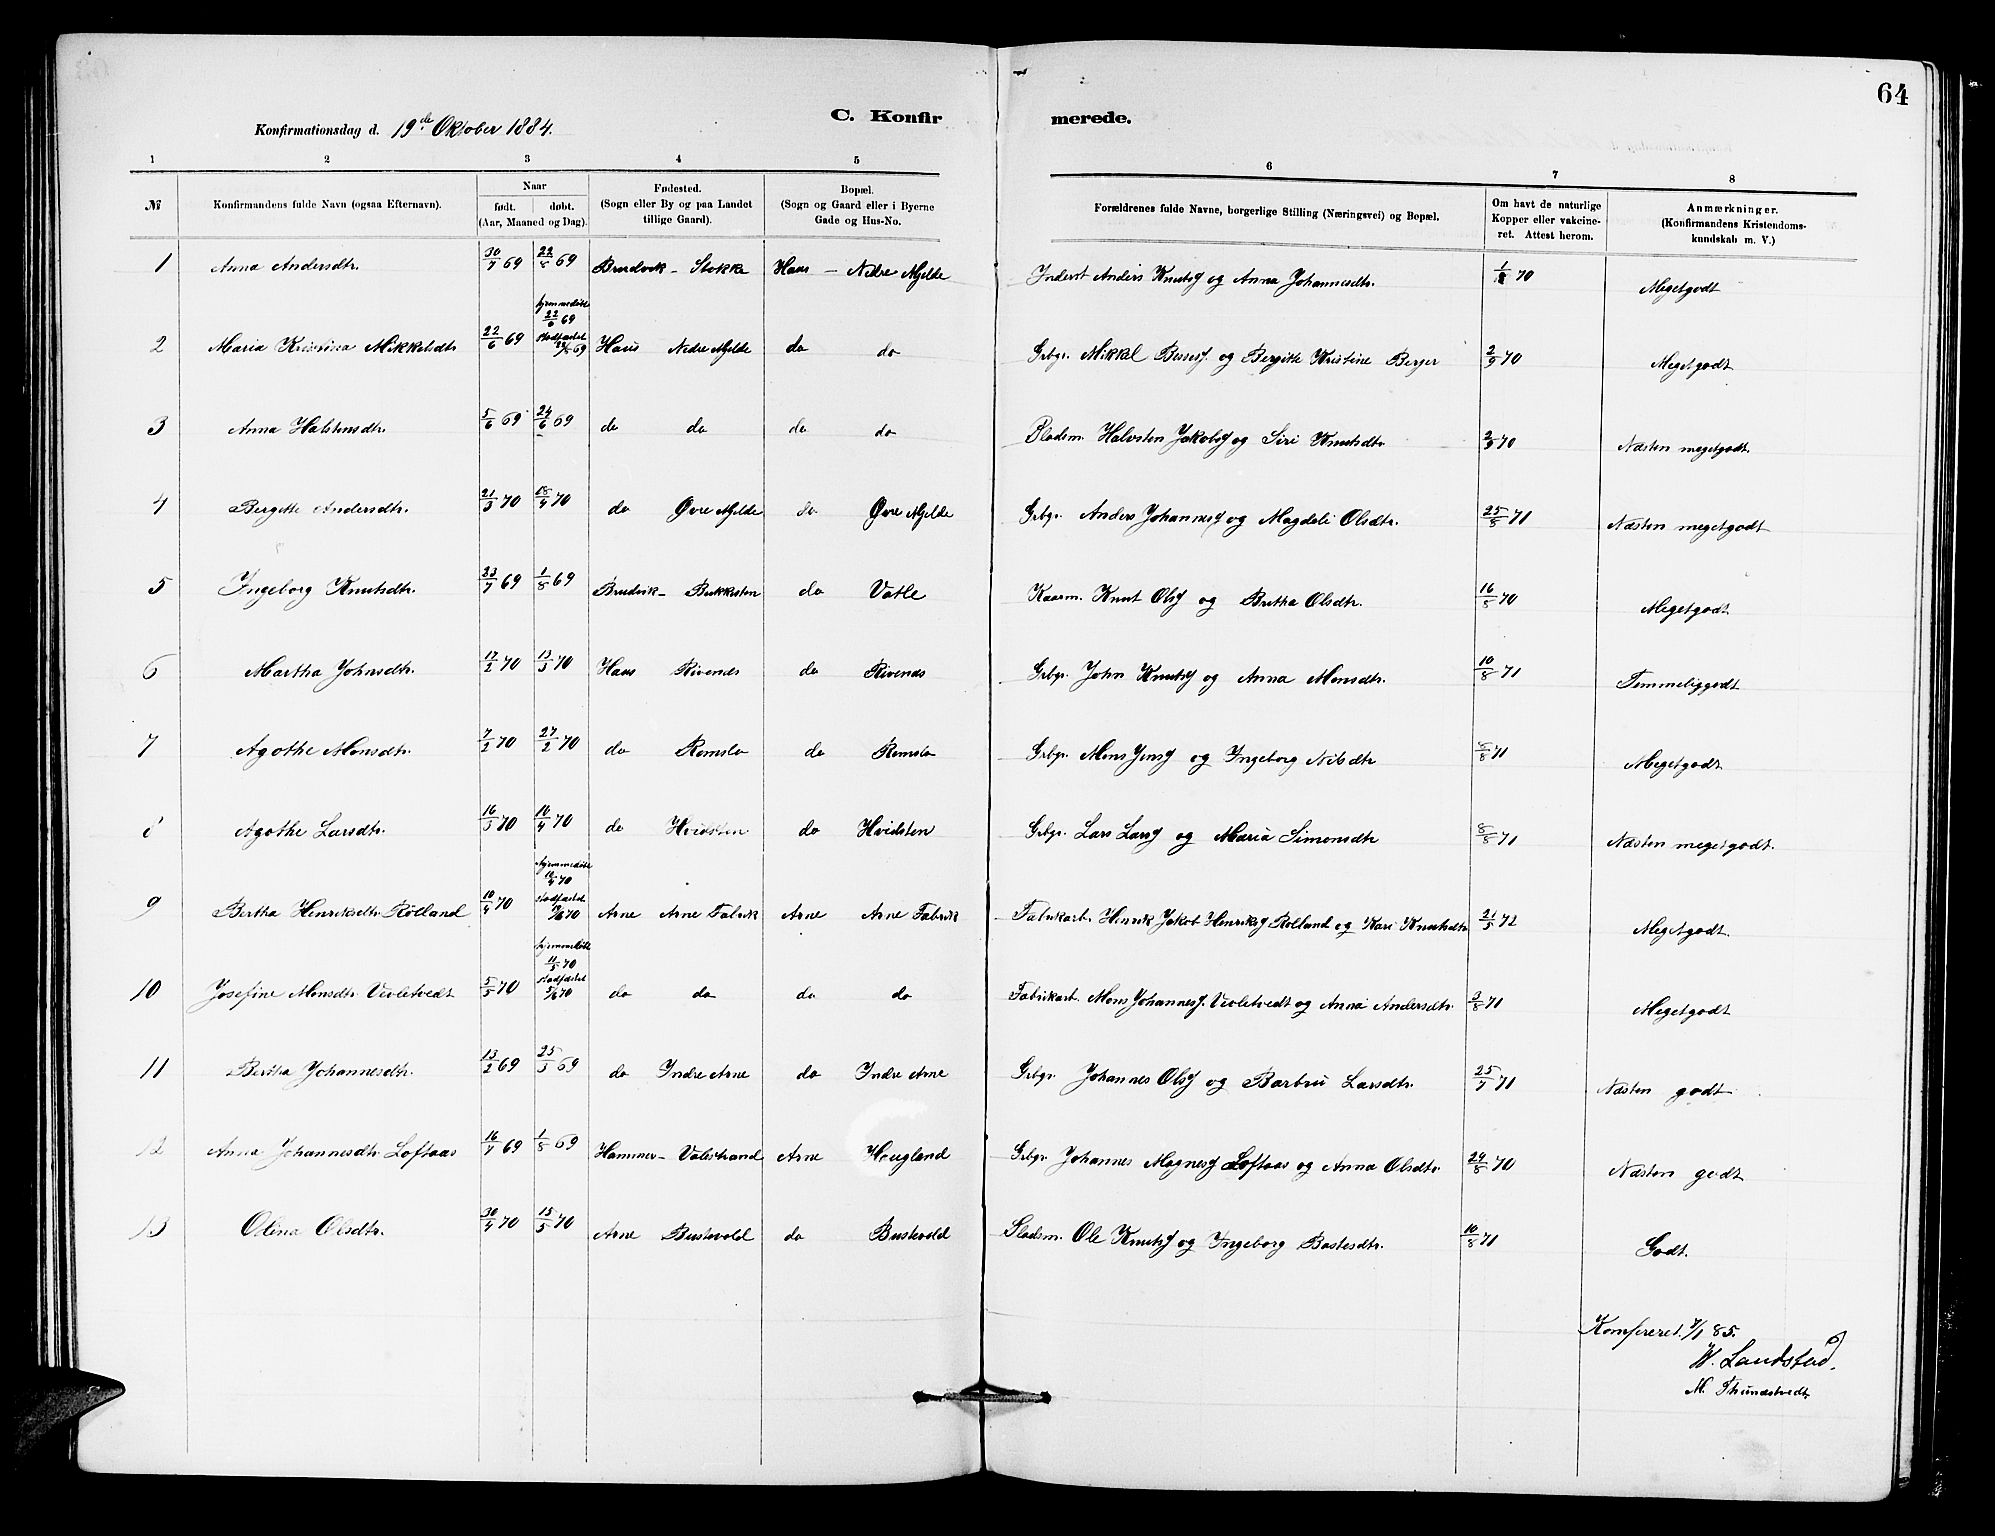 64
C. Konfir merede.
Konfirmationsdag d. 19de Oktober 1884.
1 2 3 4 5 6 7 8
№ Konfirmandens fulde Navn (ogsaa Efternavn). Naar født. døbt. (Aar, Maaned og Dag). Fødested. (Sogn eller By og paa Landet tillige Gaard). Bopæl. (Sogn og Gaard eller i Byerne Gade og Hus-No. Forældrenes fulde Navne, borgerlige Stilling (Næringsvei) og Bopæl. Om havt de naturlige Kopper eller vakcineret. Attest herom. Anmærkninger. (Konfirmandens Kristendomskundskab m. V.)
1 Anna Andersdtr. 30/7 69 22/8 69 Bruvik – Stokke Haus – Nedre Mjelde Inderst Anders Knutsf og Anna Johannesdtr. 70 Megetgodt
2 Maria Kristina Mikkelsdtr 22/6 69 hjemmedöbt 22/6 69 stadfæstet 69 Haus Nedre Mjelde do do Grbgr. Mikkel Bessesf. og Bergitte Kristine Berger 2/9 70 Megetgodt
3 Anna Halstensdtr. 5/6 69 24/6 69 do do do do Pladsm. Halvsten Jakobsf og Siri Knutsdtr 2/9 70 Næsten megetgodt.
4 Bergitte Andersdtr. 21/3 70 18/4 70 do Øvre Mjelde do Øvre Mjelde Grbgr. Anders Johannesf og Magdeli Olsdtr. 25/5 71 Næsten megetgodt
5 Ingeborg Knutsdtr. 23/7 69 1/8 69 Bruvik – Bukkesten do Vatle Kaarm. Knut Olsf og Brita Olsdtr. 16/5 70 Megetgodt
6 Martha Johnsdtr. 17/2 70 13/3 70 Haus Rivenes do Rivenes Grbgr. John Knutsf og Anna Monsdtr. 10/8 71 Temmeliggodt
7 Agathe Monsdtr. 7/2 70 27/2 70 do Romslo do Romslo Grbgr. Mons Jensf og Ingeborg Nilsdtr 8/8 71 Megetgodt
8 Agathe Larsdtr. 16/3 70 10/4 70 do Hvidsten do Hvidsten Grbgr. Lars Larsf og Maria Simonsdtr 8/8 71 Næsten megetgodt.
9 Bertha Henriksdtr. Rölland 10/4 70 hjemmedöbt 12/4 70 stadfæstet 70 Arne Arne Fabrik Arne Arne Fabrik Fabrikarb. Henrik Jakob Henriksf Rölland og Kari Knutsdtr 21/5 72 Megetgodt.
10 Josefine Monsdtr. Veoletvedt 5/5 70 hjemmedöbt 11/5 70 stadfæstet 5/6 70 do do do do Fabrikarb. Mons Johannesf. Veoletvedt og Anna Andersdtr. 3/8 71 Megetgodt
11 Bertha Johannesdtr. 13/2 69 25/3 69 do Indre Arne do Indre Arne Grbgr. Johannes Olsf og Barbru Larsdtr. 25/7 71 Næsten godt
12 Anna Johannesdtr. Loftaas 16/7 69 1/8 69 Hammer – Valestrand Arne Hougland Grbgr. Johannes Magnesf Loftaas og Anna Olsdtr. 24/8 70 Næsten godt
13 Olina Olsdtr. 30/4 70 15/5 70 Arne Bustevold do Bustevold Pladsm. Ole Knutsf og Ingeborg Bastesdtr. 10/8 71 Godt.
Konfereret 7/1 85.
W. Landstad.
M. Thunestvedt